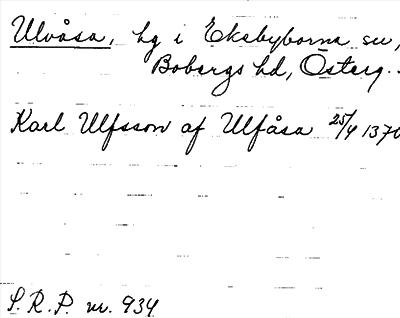 Ulvåsa, hg i Ekebyborna sn,
Bobergs hd, Österg.
Karl Ulfsson af Ulfåsa 25/4 1370
S.R.P. nr. 934